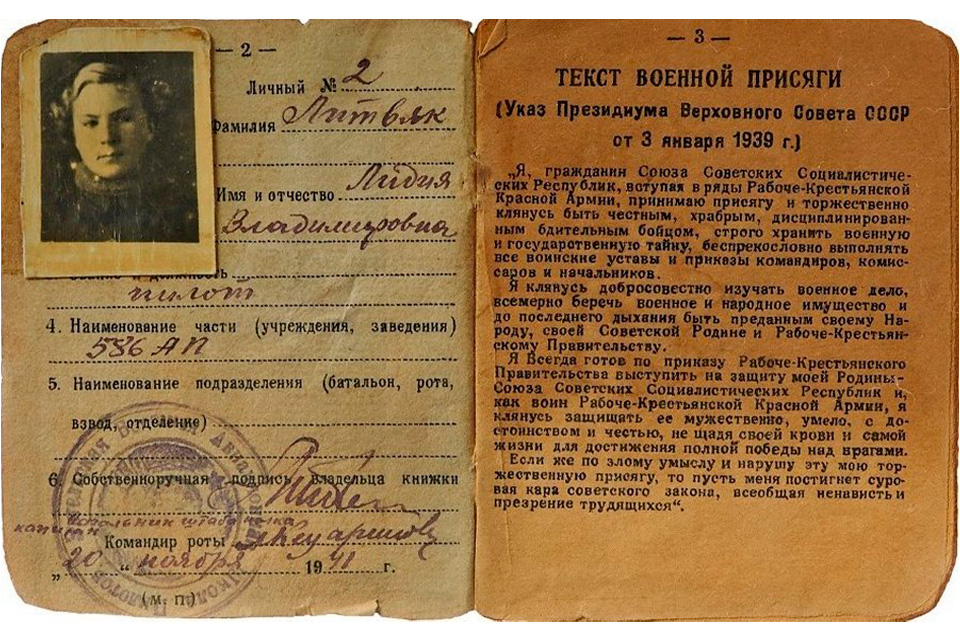 — 2 —
Личный № 2
Фамилия Литвяк
Имя и отчество Лидия
Владимировна
должность
пилот
4. Наименование части (учреждения, заведения)
586 АП
5. Наименование подразделения (батальон, рота,
взвод, отделение)
6. Собственноручная подпись владельца книжки
капитан начальник штаба полка
Командир роты
„ 20 “ ноября 1941 г.
(м. п.)
— 3 —
ТЕКСТ ВОЕННОЙ ПРИСЯГИ
(Указ Президиума Верховного Совета СССР
от 3 января 1939 г.)
„Я, гражданин Союза Советских Социалистиче-
ских Республик, вступая в ряды Рабоче-Крестьянской
Красной Армии, принимаю присягу и торжественно
клянусь быть честным, храбрым, дисциплинирован-
ным бдительным бойцом, строго хранить военную
и государственную тайну, беспрекословно выполнять
все воинские уставы и приказы командиров, комис-
саров и начальников.
Я клянусь добросовестно изучать военное дело,
всемерно беречь военное и народное имущество и
до последнего дыхания быть преданным своему На-
роду, своей Советской Родине и Рабоче-Крестьян-
скому Правительству.
Я Всегда готов по приказу Рабоче-Крестьянского
Правительства выступить на защиту моей Родины-
Союза Советских Социалистических Республик и,
как воин Рабоче-Крестьянской Красной Армии, я
клянусь защищать ее мужественно, умело, с до-
стоинством и честью, не щадя своей крови и самой
жизни для достижения полной победы над врагами.
Если же по злому умыслу я нарушу эту мою тор-
жественную присягу, то пусть меня постигнет суро-
вая кара советского закона, всеобщая ненависть и
презрение трудящихся“.